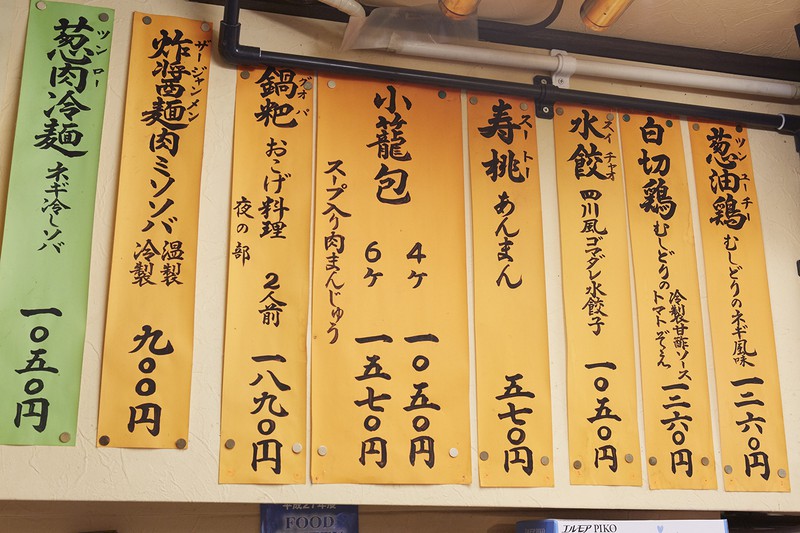 葱油鶏
ツンユーチー
むしどりのネギ風味
一二六〇円
白切鶏
むしどりの
冷製甘酢ソース
トマトぞえ
一二六〇円
水餃
スイチャオ
四川風ゴマダレ水餃子
一〇五〇円
寿桃
スートー
あんまん
五七〇円
小籠包
4ケ 一〇五〇円
6ケ 一五七〇円
スープ入り肉まんじゅう
鍋粑
グオバ
おこげ料理 2人前
夜の部
一八九〇円
炸醤麺
ザージャンメン
肉ミソソバ
温製
冷製
九〇〇円
葱肉冷麺
ツンロー
ネギ冷しソバ
一〇五〇円
平成27年度
FOOD
エルモア PIKO